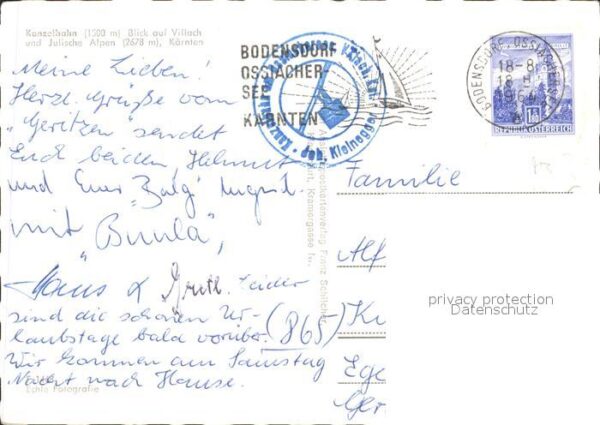 Kanzelbahn (1500 m) Blick auf Villach
und Julische Alpen (2678 m), Kärnten
Meine Lieben!
Herzl. Grüße vom
"Geritzen" sendet
Euch beiden Helmut
und Euer "Balg" Ingrid
mit "Bunla",
Hans & Gretl. Leider
sind die schönen Ur-
laubstage bald vorüber.
Wir kommen am Samstag
Nacht nach Hause.
Echte Fotografie
BODENSDORF
OSSIACHER
SEE
KÄRNTEN
Joh. Kleinegger
BODENSDORF OSSIACHERSEE
18-8
REPUBLIK ÖSTERREICH
Familie
Alf
(865) Ku
Ege
Ger
privacy protection
Datenschutz